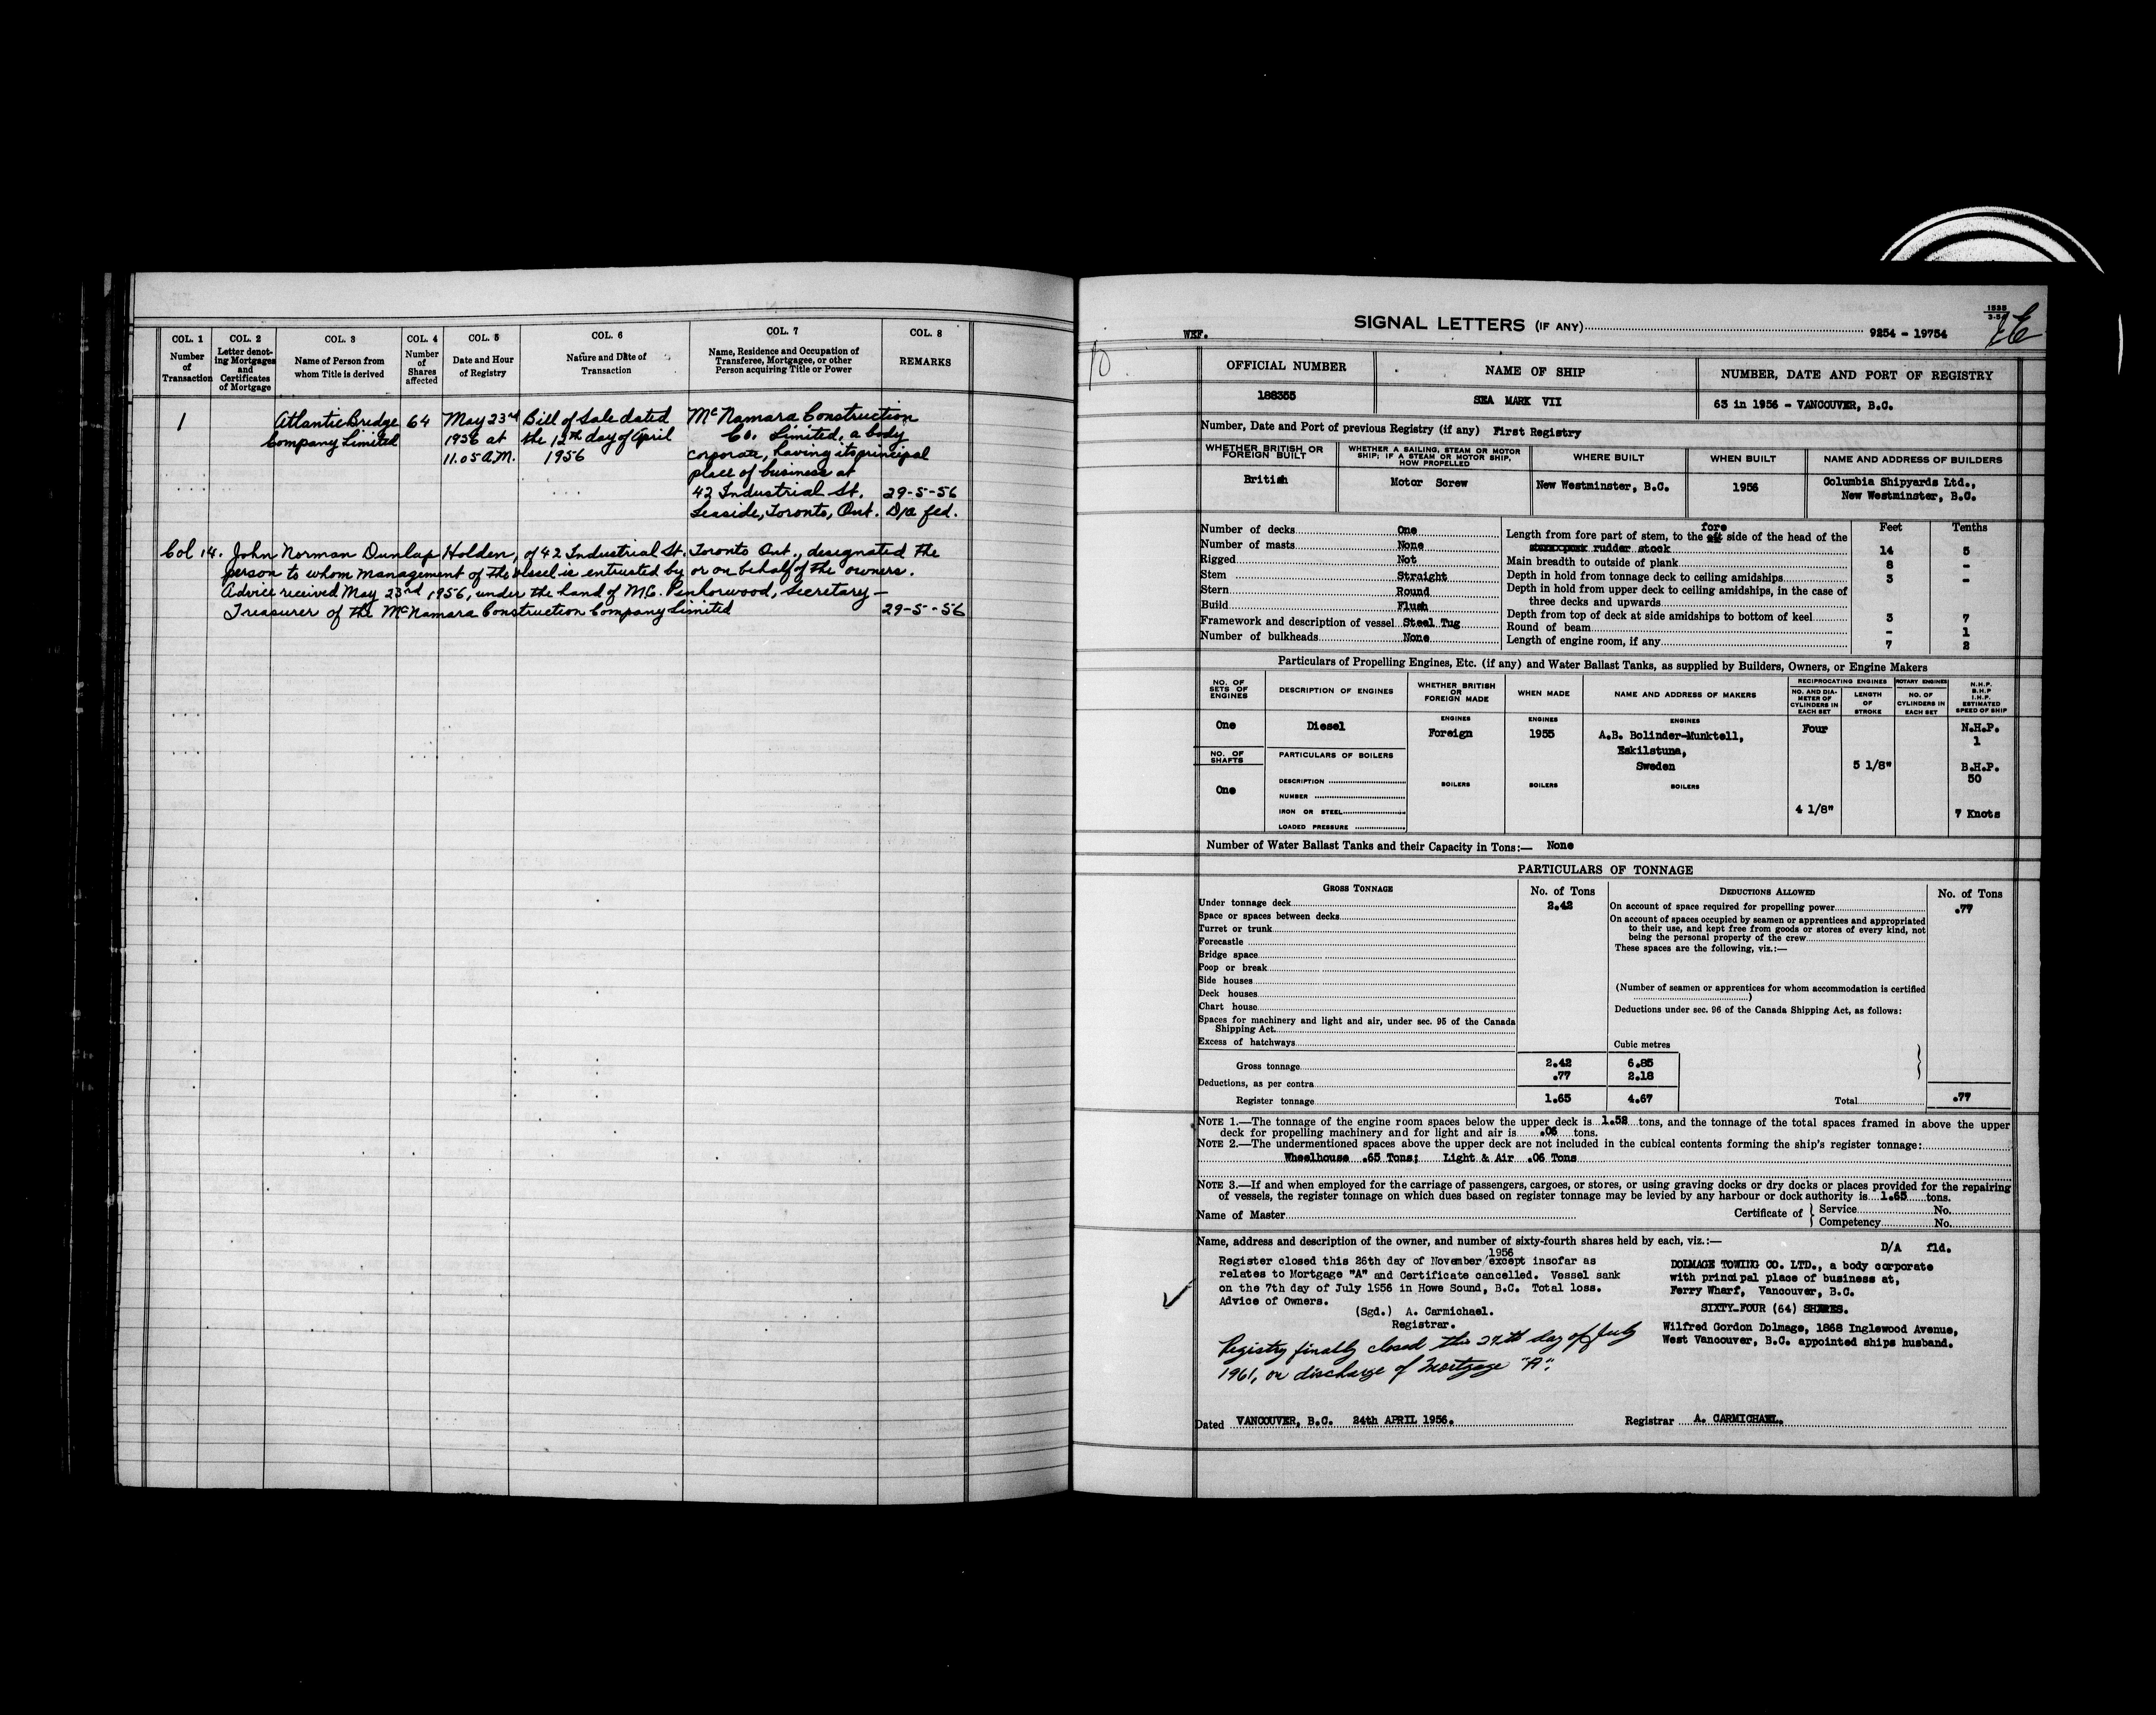 COL. 1 COL. 2 COL. 3 COL. 4 COL. 5 COL. 6 COL. 7 COL. 8
Number of Transaction
Letter denoting Mortgages and Certificates of Mortgage
Name of Person from whom Title is derived
Number of Shares affected
Date and Hour of Registry
Nature and Date of Transaction
Name, Residence and Occupation of Transferee, Mortgagee, or other Person acquiring Title or Power
REMARKS
1 Atlantic Bridge 64 May 23rd Bill of Sale dated McNamara Construction
Company Limited 1956 at the 12th day of April Co. Limited, a body
11.05 A.M. 1956 corporate, having its principal
place of business at
42 Industrial St. 29-5-56
Leaside, Toronto, Ont. D/a fed.
Col 14. John Norman Dunlap Holden, of 42 Industrial St. Toronto Ont., designated the
person to whom management of the vessel is entrusted by or on behalf of the owners.
Advice received May 23rd 1956, under the hand of M.C. Penhorwood, Secretary-
Treasurer of the McNamara Construction Company Limited 29-5-56
1535
10.
WEF.
SIGNAL LETTERS (IF ANY) 9254 - 19754
OFFICIAL NUMBER NAME OF SHIP NUMBER, DATE AND PORT OF REGISTRY
188355 SEA MARK VII 63 in 1956 - VANCOUVER, B.C.
Number, Date and Port of previous Registry (if any) First Registry
WHETHER BRITISH OR FOREIGN BUILT
WHETHER A SAILING, STEAM OR MOTOR SHIP; IF A STEAM OR MOTOR SHIP, HOW PROPELLED
WHERE BUILT WHEN BUILT NAME AND ADDRESS OF BUILDERS
British Motor Screw New Westminster, B.C. 1956 Columbia Shipyards Ltd.,
New Westminster, B.C.
Number of decks One
Number of masts None
Rigged Not
Stem Straight
Stern Round
Build Flush
Framework and description of vessel Steel Tug
Number of bulkheads None
Feet Tenths
fore
Length from fore part of stem, to the aft side of the head of the
rudder stock 14 5
Main breadth to outside of plank 8 -
Depth in hold from tonnage deck to ceiling amidships 3 -
Depth in hold from upper deck to ceiling amidships, in the case of
three decks and upwards
Depth from top of deck at side amidships to bottom of keel 3 7
Round of beam - 1
Length of engine room, if any 7 2
Particulars of Propelling Engines, Etc. (if any) and Water Ballast Tanks, as supplied by Builders, Owners, or Engine Makers
NO. OF SETS OF ENGINES
DESCRIPTION OF ENGINES
WHETHER BRITISH OR FOREIGN MADE
WHEN MADE
NAME AND ADDRESS OF MAKERS
RECIPROCATING ENGINES ROTARY ENGINES
NO. AND DIAMETER OF CYLINDERS IN EACH SET
LENGTH OF STROKE
NO. OF CYLINDERS IN EACH SET
N.H.P. B.H.P I.H.P. ESTIMATED SPEED OF SHIP
ENGINES ENGINES ENGINES
One Diesel Foreign 1955 A.B. Bolinder-Munktell, Four N.H.P.
Eskilstuna, 1
Sweden 5 1/8" B.H.P.
50
NO. OF SHAFTS PARTICULARS OF BOILERS
One
DESCRIPTION BOILERS BOILERS BOILERS
NUMBER
IRON OR STEEL 4 1/8" 7 Knots
LOADED PRESSURE
Number of Water Ballast Tanks and their Capacity in Tons:— None
PARTICULARS OF TONNAGE
GROSS TONNAGE No. of Tons DEDUCTIONS ALLOWED No. of Tons
Under tonnage deck 2.42
Space or spaces between decks
Turret or trunk
Forecastle
Bridge space
Poop or break
Side houses
Deck houses
Chart house
Spaces for machinery and light and air, under sec. 95 of the Canada
Shipping Act
Excess of hatchways
On account of space required for propelling power .77
On account of spaces occupied by seamen or apprentices and appropriated
to their use, and kept free from goods or stores of every kind, not
being the personal property of the crew
These spaces are the following, viz.:—
(Number of seamen or apprentices for whom accommodation is certified
)
Deductions under sec. 96 of the Canada Shipping Act, as follows:
Cubic metres
Gross tonnage 2.42 6.85
Deductions, as per contra .77 2.18
Register tonnage 1.65 4.67 Total .77
NOTE 1.—The tonnage of the engine room spaces below the upper deck is 1.52 tons, and the tonnage of the total spaces framed in above the upper
deck for propelling machinery and for light and air is .06 tons.
NOTE 2.—The undermentioned spaces above the upper deck are not included in the cubical contents forming the ship's register tonnage:
Wheelhouse .65 Tons; Light & Air .06 Tons
NOTE 3.—If and when employed for the carriage of passengers, cargoes, or stores, or using graving docks or dry docks or places provided for the repairing
of vessels, the register tonnage on which dues based on register tonnage may be levied by any harbour or dock authority is 1.65 tons.
Name of Master Certificate of { Service No.
Competency No.
Name, address and description of the owner, and number of sixty-fourth shares held by each, viz.:—
D/A fld.
1956
Register closed this 26th day of November/except insofar as
relates to Mortgage "A" and Certificate cancelled. Vessel sank
on the 7th day of July 1956 in Howe Sound, B.C. Total loss.
Advice of Owners.
(Sgd.) A. Carmichael.
Registrar.
Registry finally closed this 27th day of July
1961, on discharge of Mortgage "A".
DOLMAGE TOWING CO. LTD., a body corporate
with principal place of business at,
Ferry Wharf, Vancouver, B.C.
SIXTY-FOUR (64) SHARES.
Wilfred Gordon Dolmage, 1868 Inglewood Avenue,
West Vancouver, B.C. appointed ships husband.
Dated VANCOUVER, B.C. 24th APRIL 1956. Registrar A. CARMICHAEL.